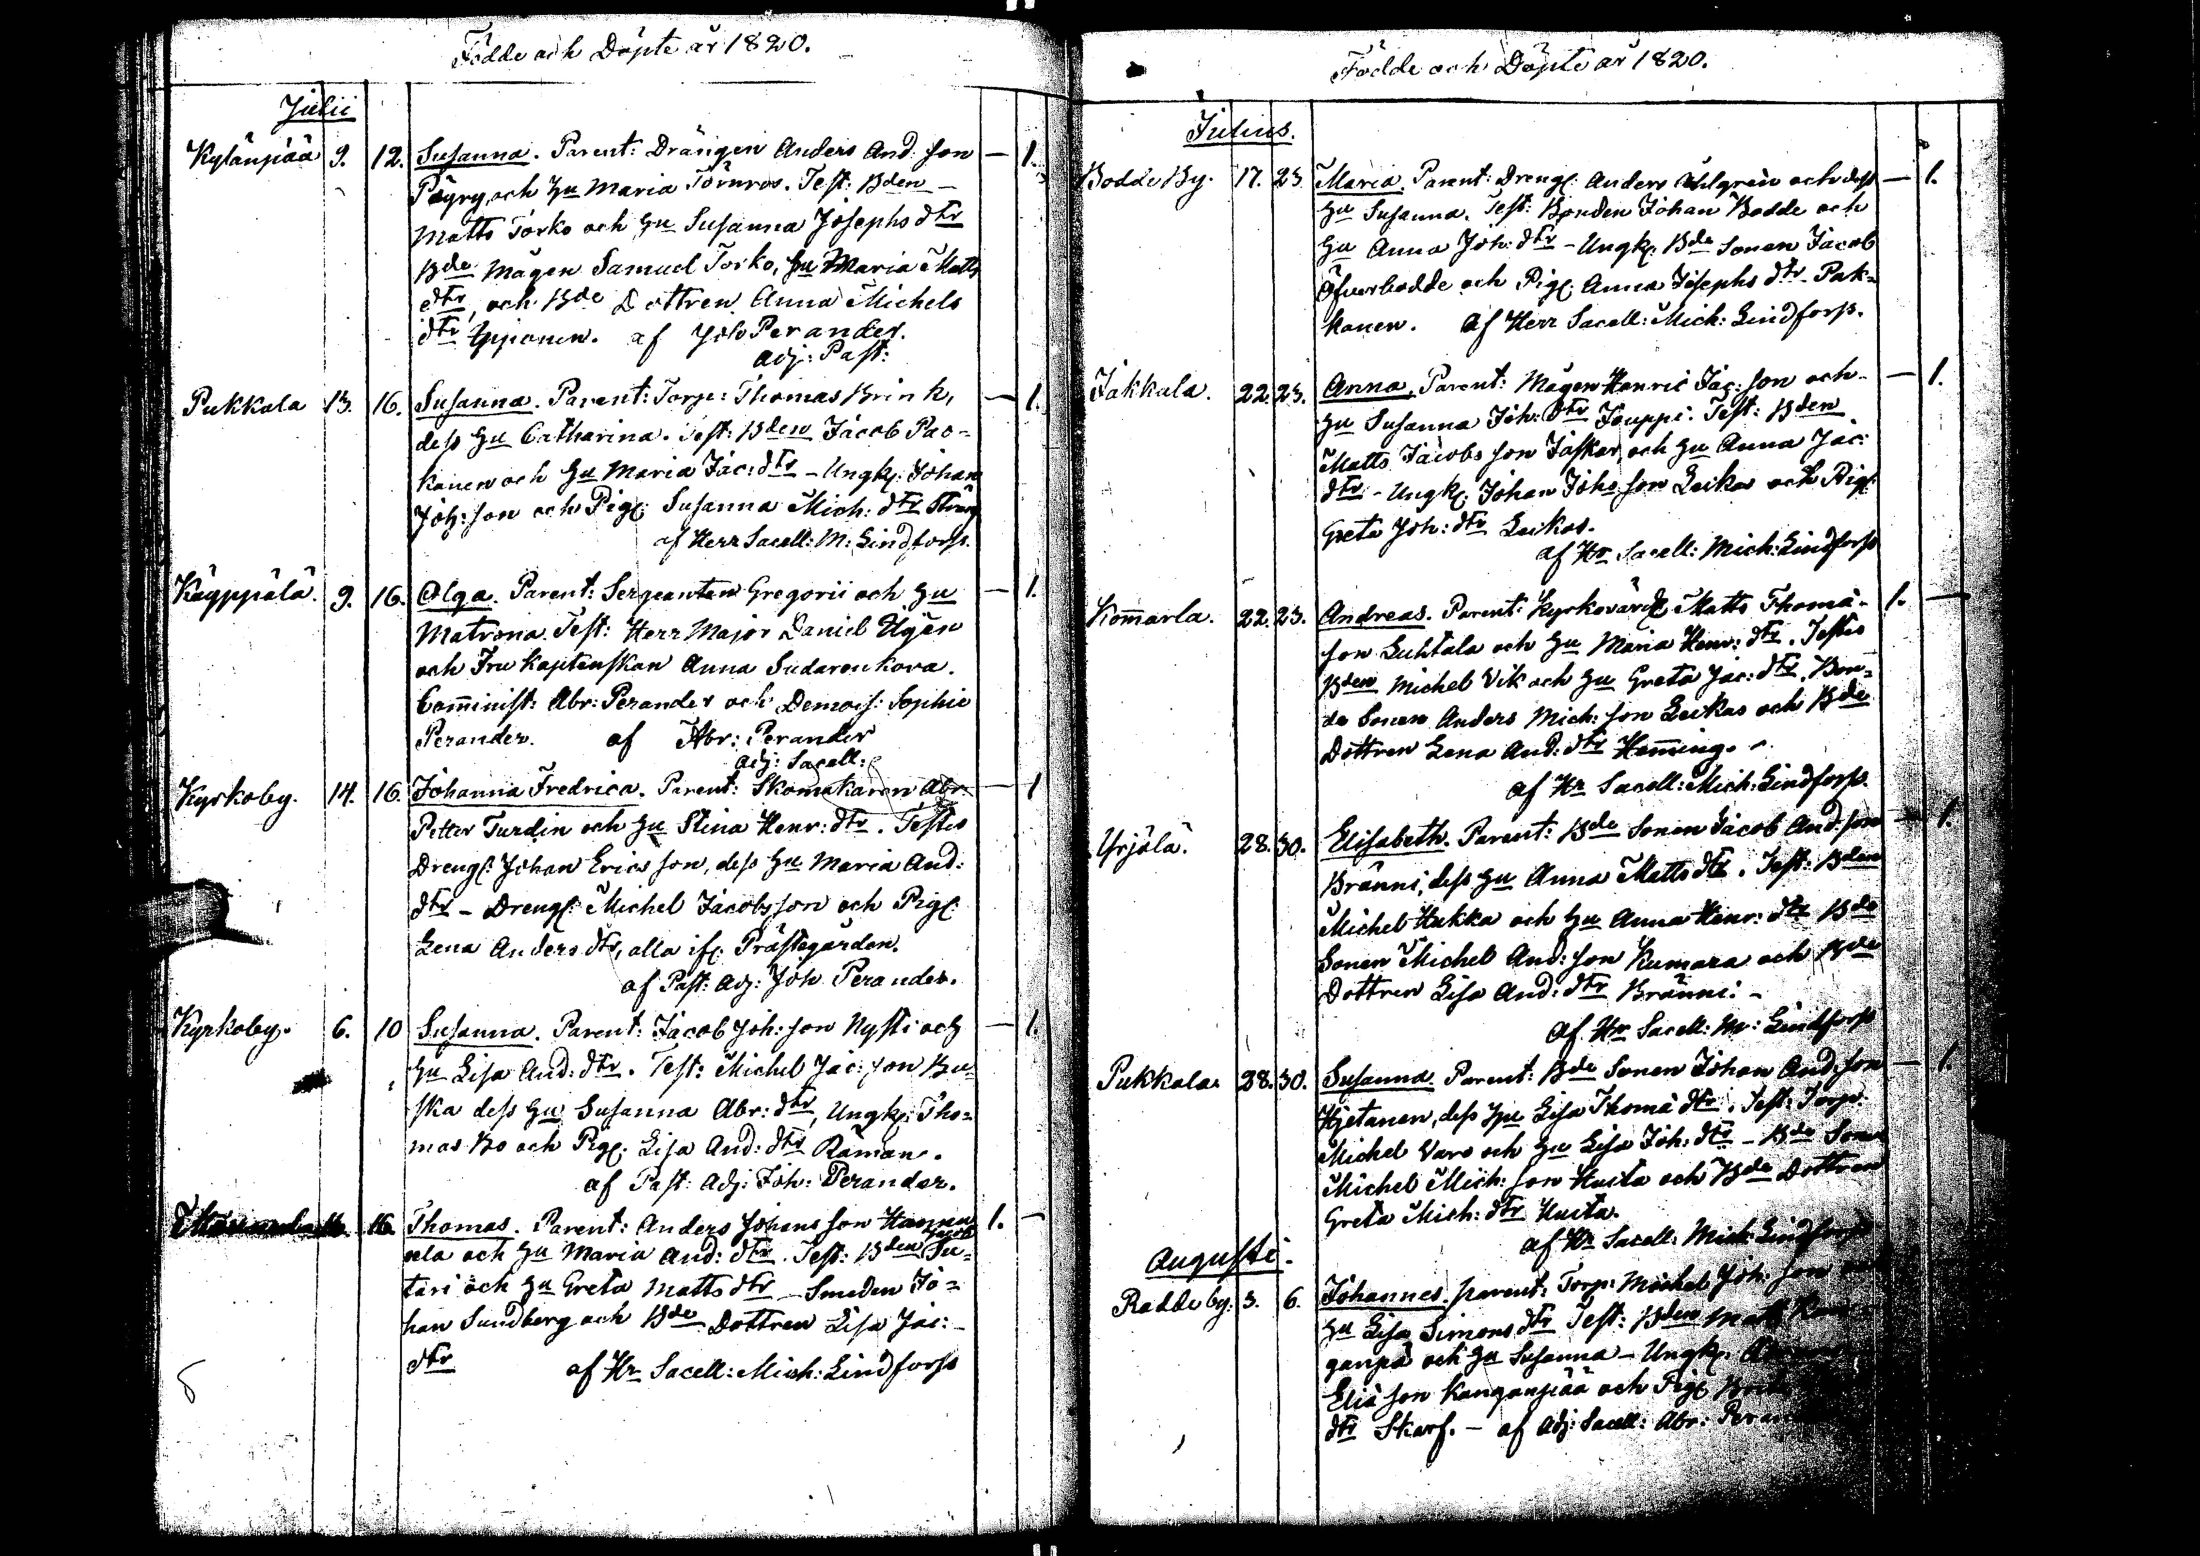 Födde och Döpte år 1820.
Julii
Kylänpää 9. 12. Susanna. Parent: Drängen Anders And: son — 1.
Pöyry, och Hu Maria Törnros. Test: Bden —
Matts Torko och Hu Susanna Josephs dtr
Bde Mågen Samuel Torko, Hu Maria Matts
dtr, och Bde Dottren Anna Michels
dtr Ypponen. af Joh Perander.
adj: Past:
Pukkala 13. 16. Susanna. Parent: Torp: Thomas Brink, — 1.
dess Hu Catharina. Test: Bden Jacob Pac-
kanen och Hu Maria Jac: dtr — Ungk: Johan
Joh: son och Pig: Susanna Mich: dtr
af Herr Sacell: M: Lindforss.
Käyppälä. 9. 16. Olga. Parent: Sergeanten Gregorii och Hu — 1.
Matrona. Test: Herr Major Daniel
och Fru Kaptenskan Anna Sudarenkova.
Comminist: Abr: Perander och Demois: Sophie
Perander. af Abr: Perander
adj: Sacell:
Kyrkoby. 14. 16. Johanna Fredrica. Parent: Skomakaren Abr: — 1
Petter Turdin och Hu Stina Henr: dtr. Testes
Dreng: Johan Ericsson, dess Hu Maria And:
dtr — Dreng: Michel Jacobsson och Pig:
Lena Anders dtr, alla if: Prästegården.
af Past: Adj: Joh Perander.
Kyrkoby. 6. 10 Susanna. Parent: Jacob Joh: son Nysti och — 1.
Hu Lisa And: dtr. Test: Michel Jac: son Bu-
ska dess Hu Susanna Abr: dtr, Ungk: Tho-
mas Bo och Pig: Lisa And: dtr Råman.
af Past: Adj: Joh: Perander.
16. Thomas. Parent: Anders Johans son Hannu 1. —
ela och Hu Maria And: dtr. Test: Bden Jacob Su-
tari och Hu Greta Matts dtr — Smeden Jo-
han Sundberg och Bde Dottren Lisa Jac: —
dtr af Hr Sacell: Mich: Lindforss
Födde och Döpte år 1820.
Julius.
Bodde By. 17. 23. Maria. Parent: Dreng: Anders Ahlgren och dess — 1.
Hu Susanna. Test: Bonden Johan Bodde och
Hu Anna Joh: dtr — Ungk: Bde Sonen Jacob
Öfverbodde och Pig: Anna Josephs dtr Pak-
kanen. af Herr Sacell: Mich: Lindforss.
Jakkula. 22. 23. Anna. Parent: Mågen Henric Jac: son och — 1.
Hu Susanna Joh: dtr Jouppi. Test: Bden
Matts Jacobs son Jaskar, och Hu Anna Jac:
dtr — Ungk: Johan Johs son Leikas och Pig:
Greta Joh: dtr Leikas.
af Hr Sacell: Mich: Lindforss
Kom̅arla. 22. 23. Andreas. Parent: Kyrkovärd: Matts Thomæ- 1. —
son Luhtala och Hu Maria Henr: dtr. Testes
Bden Michel Vik och Hu Greta Jac: dtr, Bon-
de Sonen Anders Mich: son Leikas och Bde
Dottren Lena And: dtr Hem̅ing.
af Hr Sacell: Mich: Lindforss.
Yrjälä. 28. 30. Elisabeth. Parent: Bde Sonen Jacob And: son — 1.
Bränni, dess Hu Anna Matts dtr. Test: Bden
Michel Hukka och Hu Anna Henr: dtr Bde
Sonen Michel And: son Kumara och Bde
Dottren Lisa And: dtr Bränni: —
af Hr Sacell: M: Lindforss
Pukkala. 28. 30. Susanna. Parent: Bde Sonen Johan And: son — 1.
Hjetanen, dess Hu Lisa Thomæ dtr. Test: Torp:
Michel Varo och Hu Lisa Joh: dtr — Bde Sonen
Michel Mich: son Huita och Bde Dottren
Greta Mich: dtr Huita.
af Hr Sacell: Mich: Lindforss
Augusti.
Raddeby. 3. 6. Johannes. parent: Torp: Michel Joh: son
Hu Lisa Simons dtr Test: Bden Matts Kan
ganpä och Hu Susanna — Ungk:
Eliæ son Kanganpää och Pig:
dtr Skarf. — af Adj: Sacell: Abr: